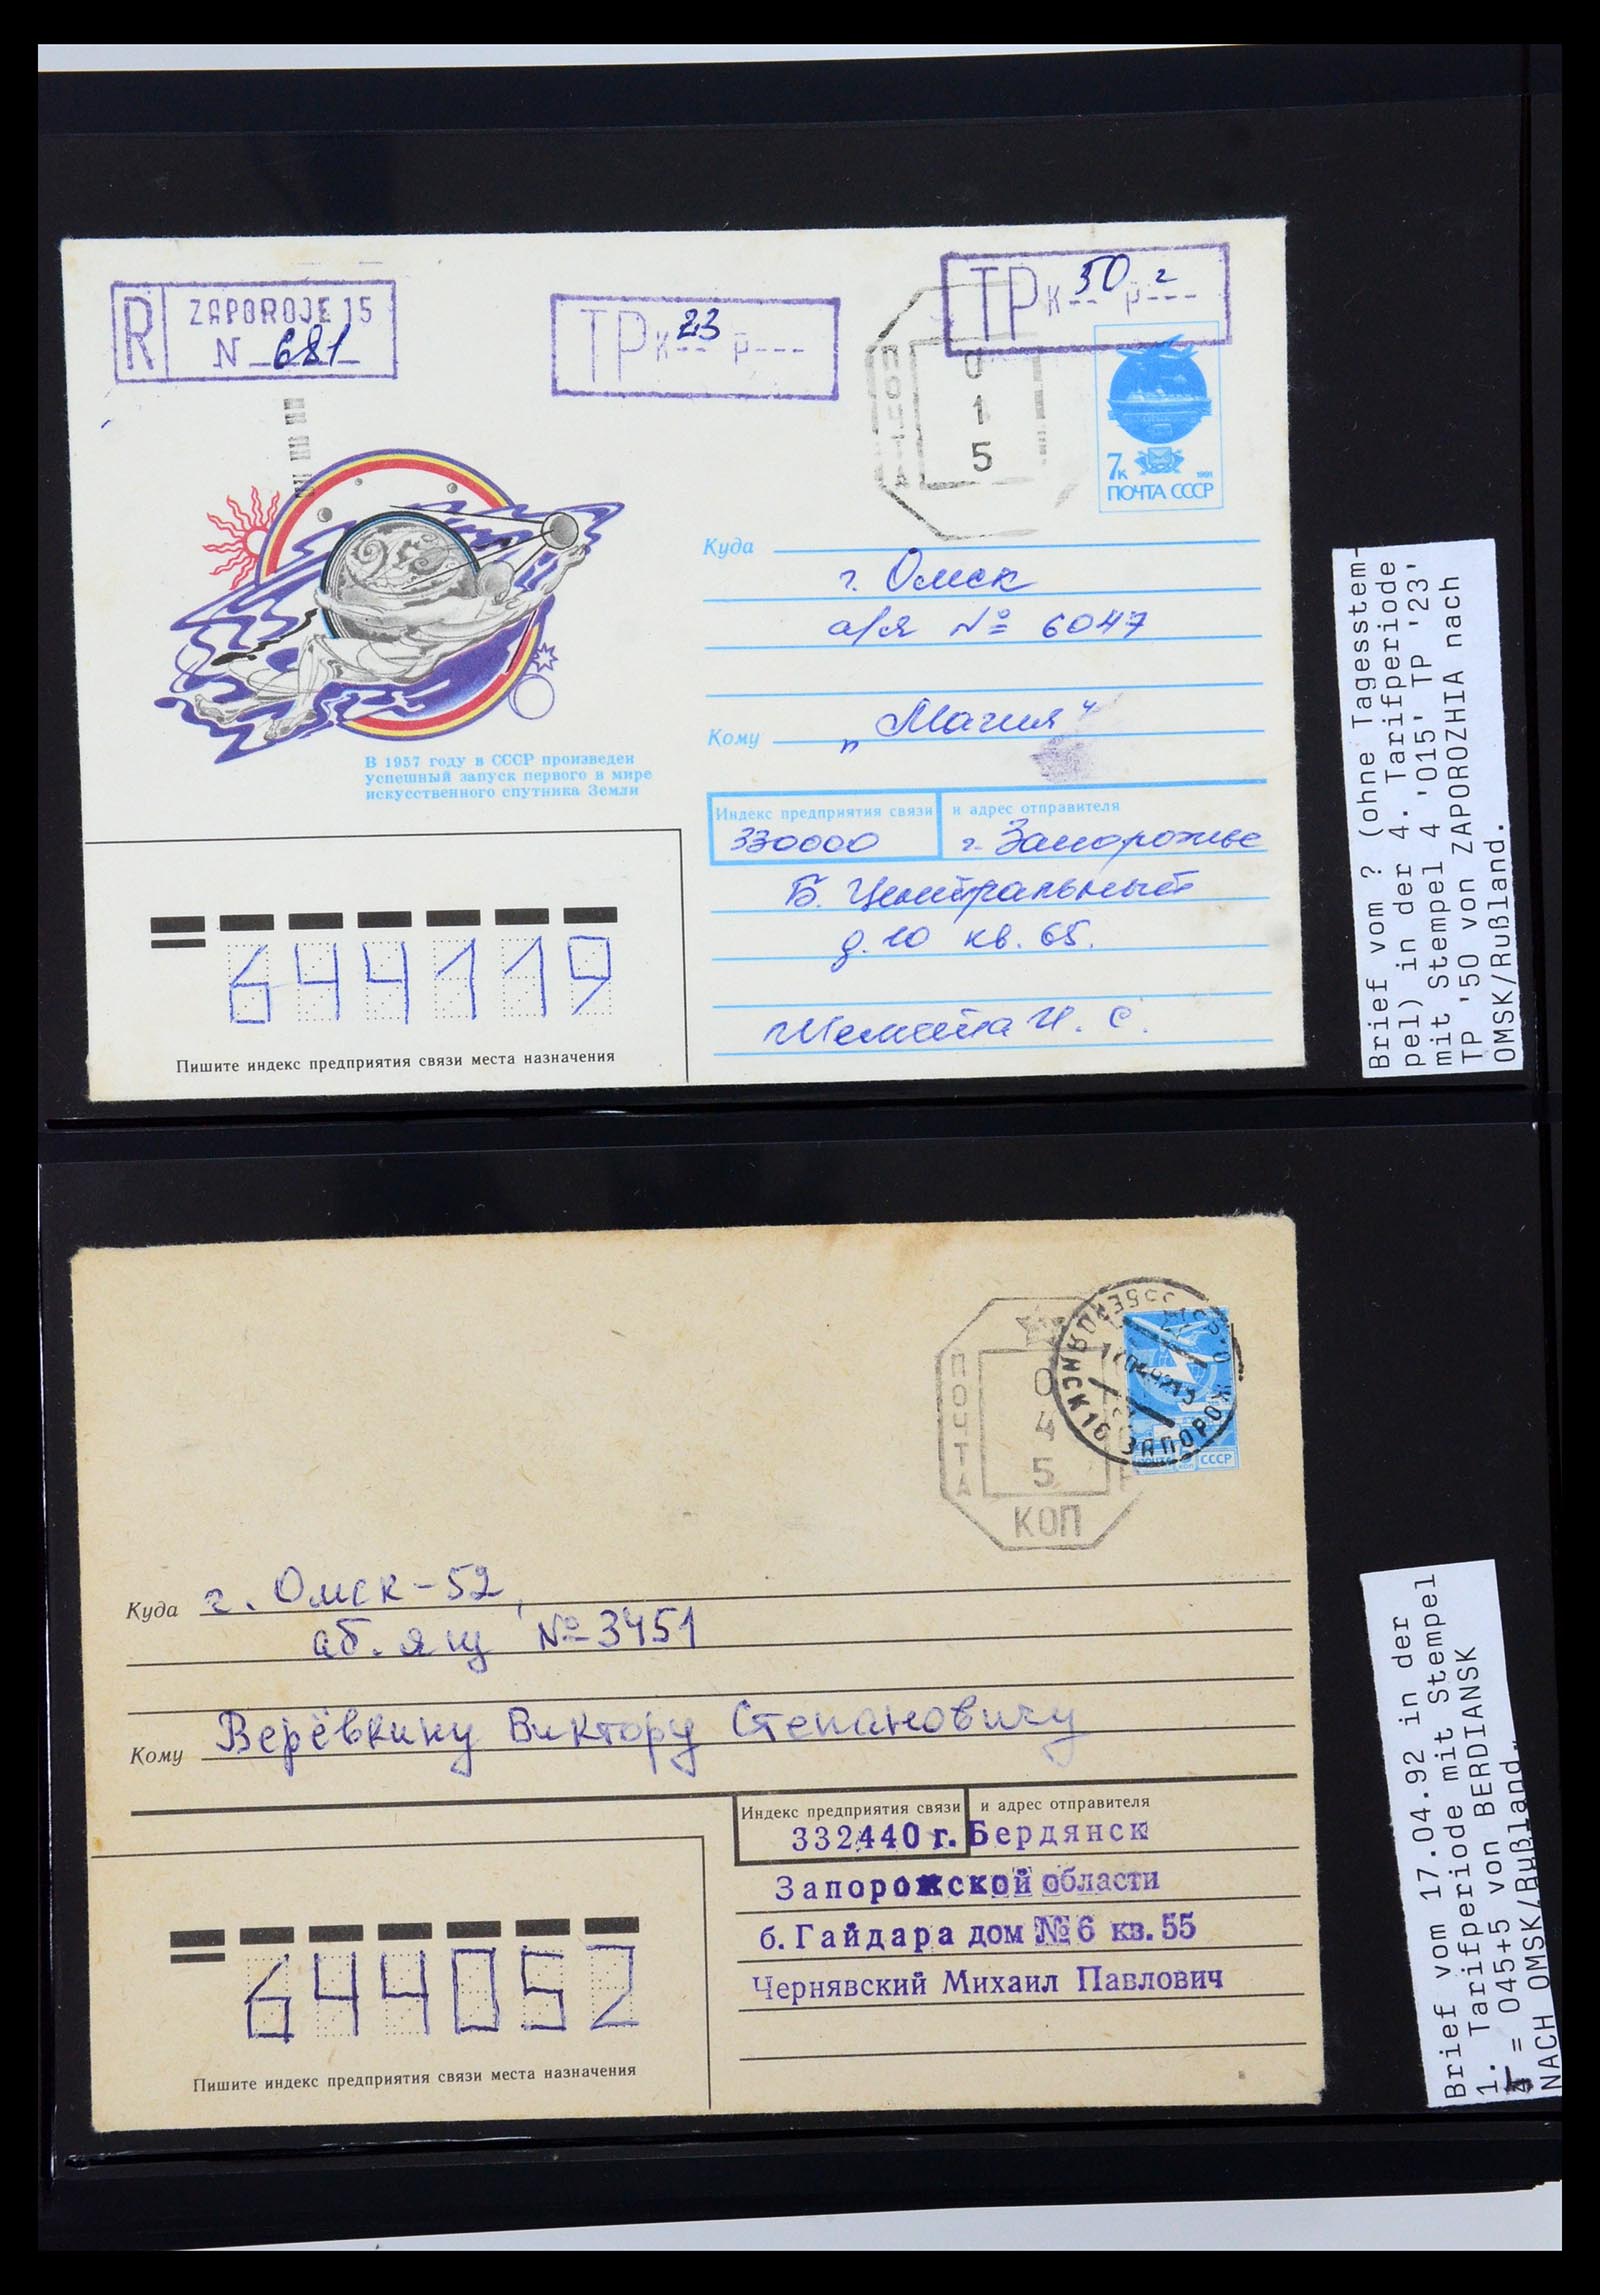 R ZAPOROJE 15
N 681
TP к 23 р
TP к 50 г р
ПОЧТА
0
1
5
7к 1991
ПОЧТА СССР
В 1957 году в СССР произведен
успешный запуск первого в мире
искусственного спутника Земли
Куда
г. Омск
а/я № 6047
Кому „Магия“
Индекс предприятия связи и адрес отправителя
330000 г. Запорожье
Б. Центральный
д. 10 кв. 65.
И. С.
644119
Пишите индекс предприятия связи места назначения
Brief vom ? (ohne Tagesstem-
pel) in der 4. Tarifperiode
mit Stempel 4 '015' TP '23'
TP '50 von ZAPOROZHIA nach
OMSK/Rußland.
ПОЧТА
0
4
5
КОП
СССР
Куда г. Омск-52,
аб. ящ №3451
Кому Верёвкину Виктору Степановичу
Индекс предприятия связи и адрес отправителя
332440 г. Бердянск
Запорожской области
б. Гайдара дом №6 кв. 55
Чернявский Михаил Павлович
644052
Пишите индекс предприятия связи места назначения
Brief vom 17.04.92 in der
1. Tarifperiode mit Stempel
= 045+5 von BERDIANSK
NACH OMSK/Rußland.